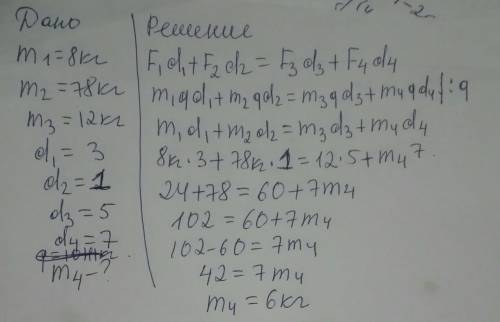 Дано
m1=8кг
m2=78кг
m3=12кг
d1=3
d2=1
d3=5
d4=7
m4-?
Решение
F1d1+F2d2=F3d3+F4d4
m1gd1+m2gd2=m3gd3+m4gd4}:g
m1d1+m2d2=m3d3+m4d4
8кг·3+78кг·1=12·5+m4 7
24+78=60+7m4
102=60+7m4
102-60=7m4
42=7m4
m4=6кг